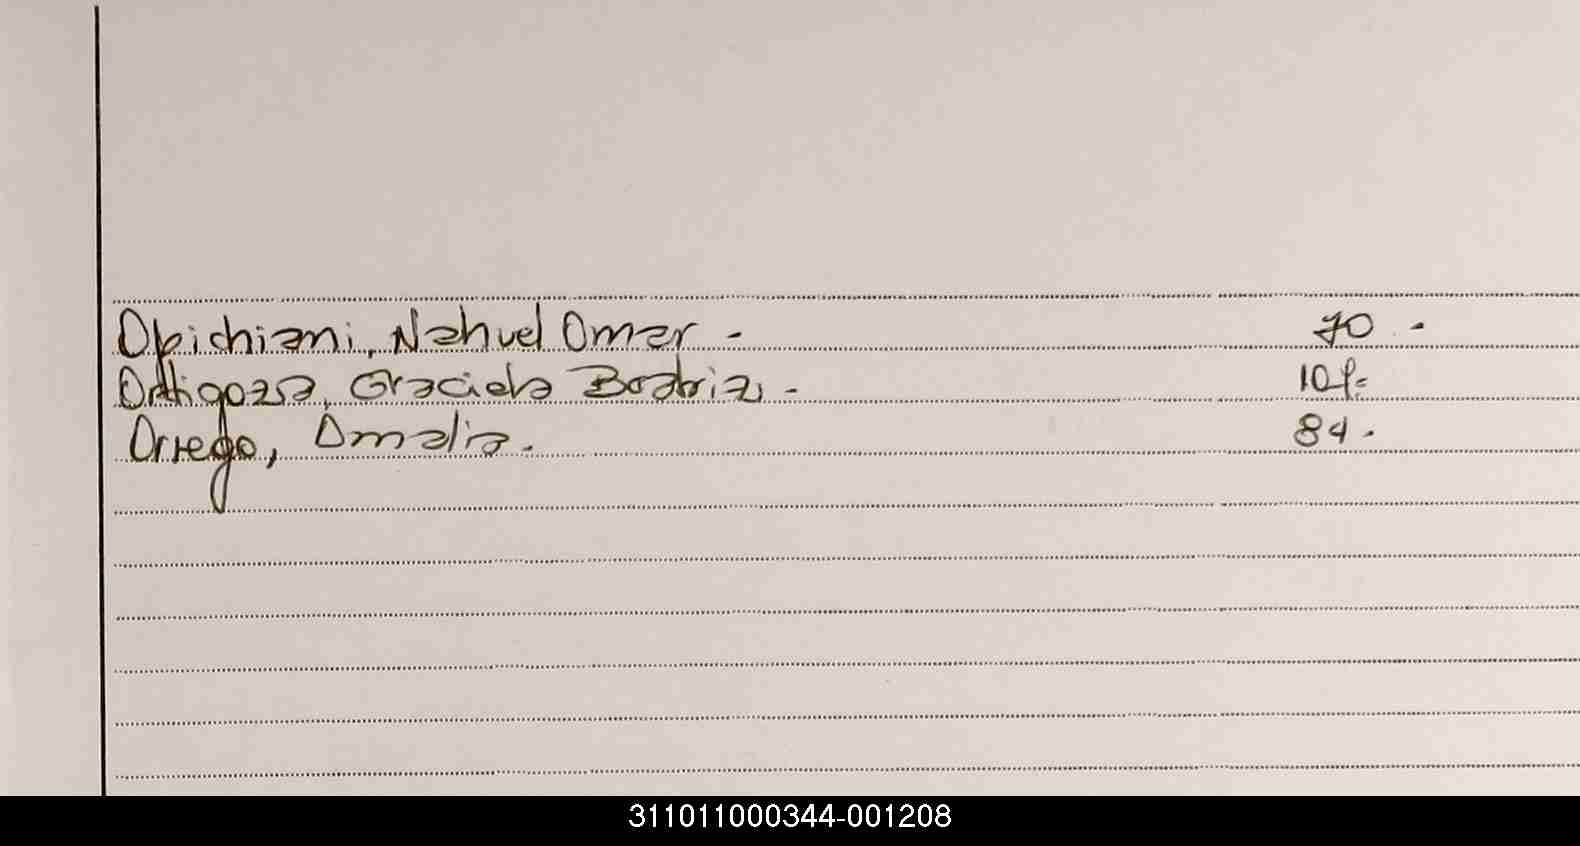 Opichiani, Nahuel Omar - 70 -
Ortigoza, Graciela Beatriz -
Orrego, Amalia. 84.
311011000344-001208